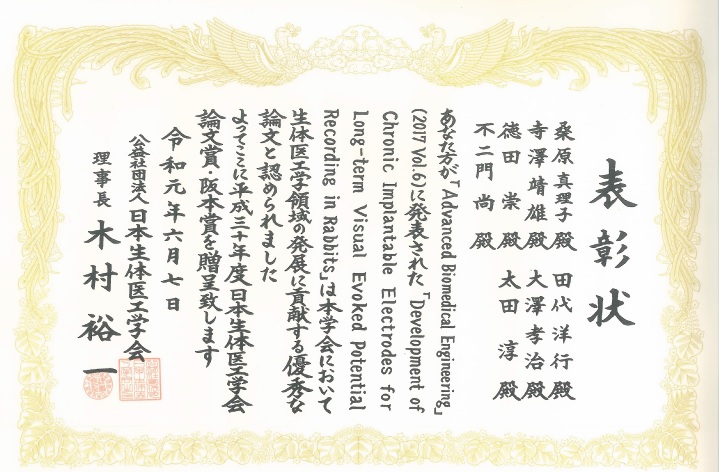 表彰状
桑原真理子殿 田代洋行殿
寺澤靖雄殿 大澤孝治殿
徳田崇殿 太田淳殿
不二門尚殿
あなた方が「Advanced Biomedical Engineering」
(2017 Vol.6)に発表された「Development of
Chronic Implantable Electrodes for
Long-term Visual Evoked Potential
Recording in Rabbits」は本学会において
生体医工学領域の発展に貢献する優秀な
論文と認められました
よってここに平成三十年度日本生体医工学会
論文賞・阪本賞を贈呈致します
令和元年六月七日
公益社団法人日本生体医工学会
理事長 木村裕一